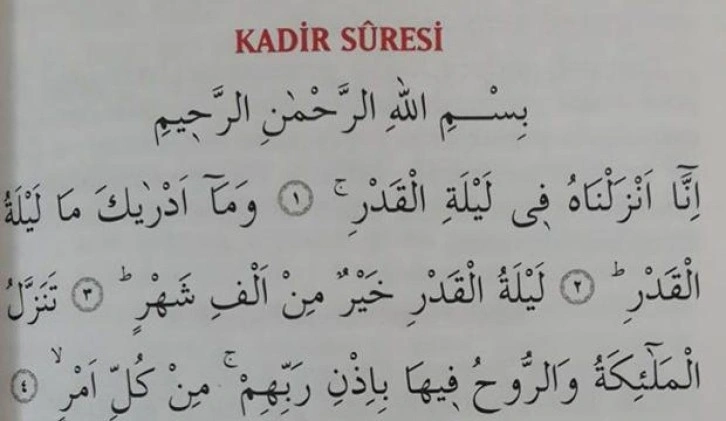 KADİR SÛRESİ
بِسْــمِ اللّٰهِ الرَّحْمٰنِ الرَّح۪يمِ
اِنَّٓا اَنْزَلْنَاهُ ف۪ى لَيْلَةِ الْقَدْرِۚ ﴿١﴾ وَمَٓا اَدْرٰيكَ مَا لَيْلَةُ
الْقَدْرِؕ ﴿٢﴾ لَيْلَةُ الْقَدْرِ خَيْرٌ مِنْ اَلْفِ شَهْرٍؕ ﴿٣﴾ تَنَزَّلُ
الْمَلٰٓئِكَةُ وَالرُّوحُ ف۪يهَا بِاِذْنِ رَبِّهِمْۚ مِنْ كُلِّ اَمْرٍۙ ﴿٤﴾